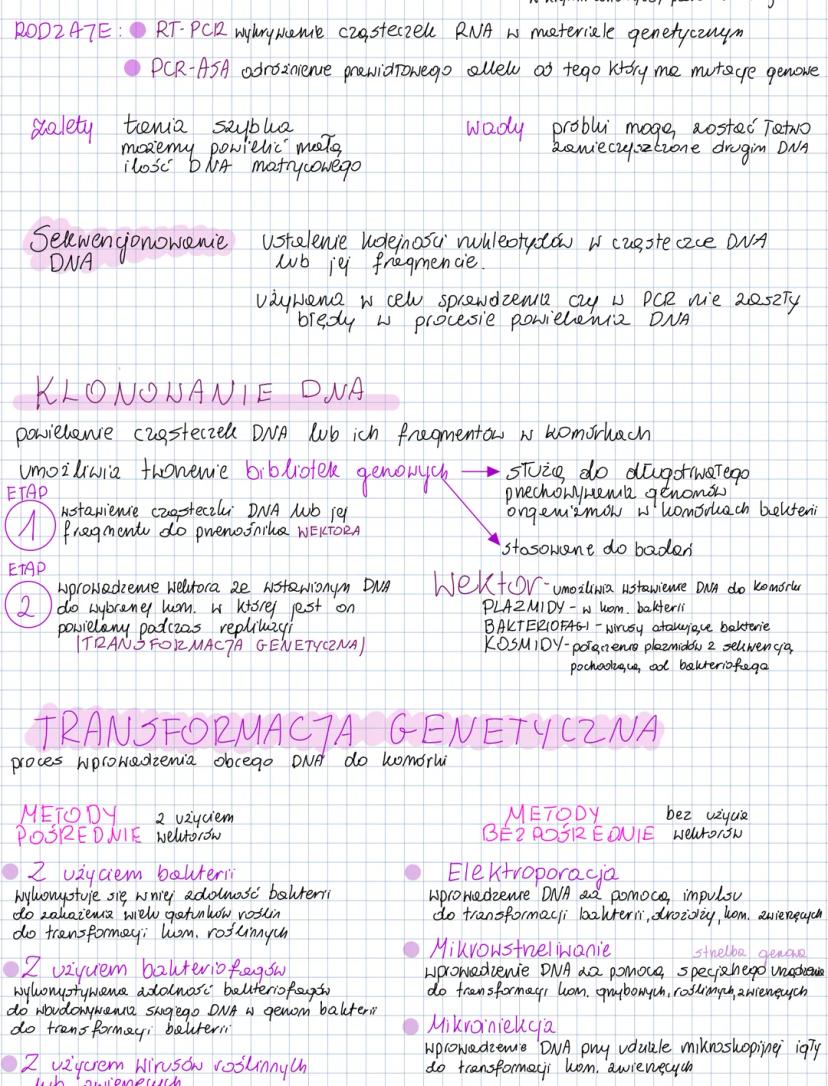 RODZAJE: RT-PCR wykrywanie cząsteczek RNA w materiale genetycznym
PCR-ASA odróżnienie prawidłowego allelu od tego który ma mutacje genowe
zalety
tania szybka
możemy powielić małą
ilość DNA matrycowego
wady
próbki mogą zostać łatwo
zanieczyszczone drugim DNA
Sekwencjonowanie
DNA
ustalenie kolejności nukleotydów w cząsteczce DNA
lub jej fragmencie.
używana w celu sprawdzenia czy w PCR nie zaszły
błędy w procesie powielania DNA
KLONOWANIE DNA
powielanie cząsteczek DNA lub ich fragmentów w komórkach
umożliwia tworzenie bibliotek genowych
służą do długotrwałego
przechowywania genomów
organizmów w komórkach bakterii
stosowane do badań
ETAP
1
wstawienie cząsteczki DNA lub jej
fragmentu do przenośnika WEKTORA
ETAP
2
wprowadzenie wektora ze wstawionym DNA
do wybranej kom. w której jest on
powielany podczas replikacji
|TRANSFORMACJA GENETYCZNA|
Wektor - umożliwia wstawienie DNA do komórki
PLAZMIDY - w kom. bakterii
BAKTERIOFAGI - wirusy atakujące bakterie
KOSMIDY - połączenie plazmidów z sekwencją
pochodzącą od bakteriofaga
TRANSFORMACJA GENETYCZNA
proces wprowadzenia obcego DNA do komórki
METODY
POŚREDNIE
z użyciem
wektorów
Z użyciem bakterii
wykorzystuje się w niej zdolność bakterii
do zakażenia wielu gatunków roślin
do transformacji kom. roślinnych
Z użyciem bakteriofagów
wykorzystywana zdolność bakteriofagów
do wbudowywania swojego DNA w genom bakterii
do transformacji bakterii
Z użyciem wirusów roślinnych
lub zwierzęcych
METODY
BEZPOŚREDNIE
bez użycia
wektorów
Elektroporacja
wprowadzenie DNA za pomocą impulsu
do transformacji bakterii, drożdży, kom. zwierzęcych
Mikrowstrzeliwanie strzelba genowa
wprowadzenie DNA za pomocą specjalnego urządzenia
do transformacji kom. grzybowych, roślinnych, zwierzęcych
Mikroiniekcja
wprowadzenie DNA przy udziale mikroskopijnej igły
do transformacji kom. zwierzęcych